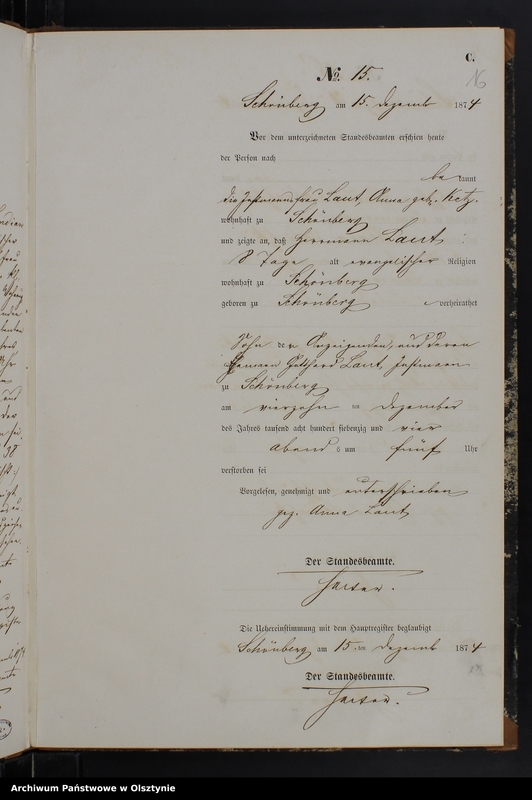 C.
16
No. 15.
Schönberg am 15. Dezemb 1874
Vor dem unterzeichneten Standesbeamten erschien heute
der Person nach
be kannt
die Instmannsfrau Laut, Anna geb.
wohnhaft zu Schönberg
und zeigte an, daß Herrmann Laut
8 Tage alt evangelischer Religion
wohnhaft zu Schönberg
geboren zu Schönberg verheirathet
Sohn der Anzeigenden, und deren
Gotthard Laut, Instmann
zu Schönberg
am vierzehn ten Dezember
des Jahres tausend acht hundert siebenzig und vier
Abend s um fünf Uhr
verstorben sei
Vorgelesen, genehmigt und unterschrieben
gez. Anna Laut
Der Standesbeamte.
Die Uebereinstimmung mit dem Hauptregister beglaubigt
Schönberg am 15. ten Dezemb 1874
Der Standesbeamte.
Archiwum Państwowe w Olsztynie